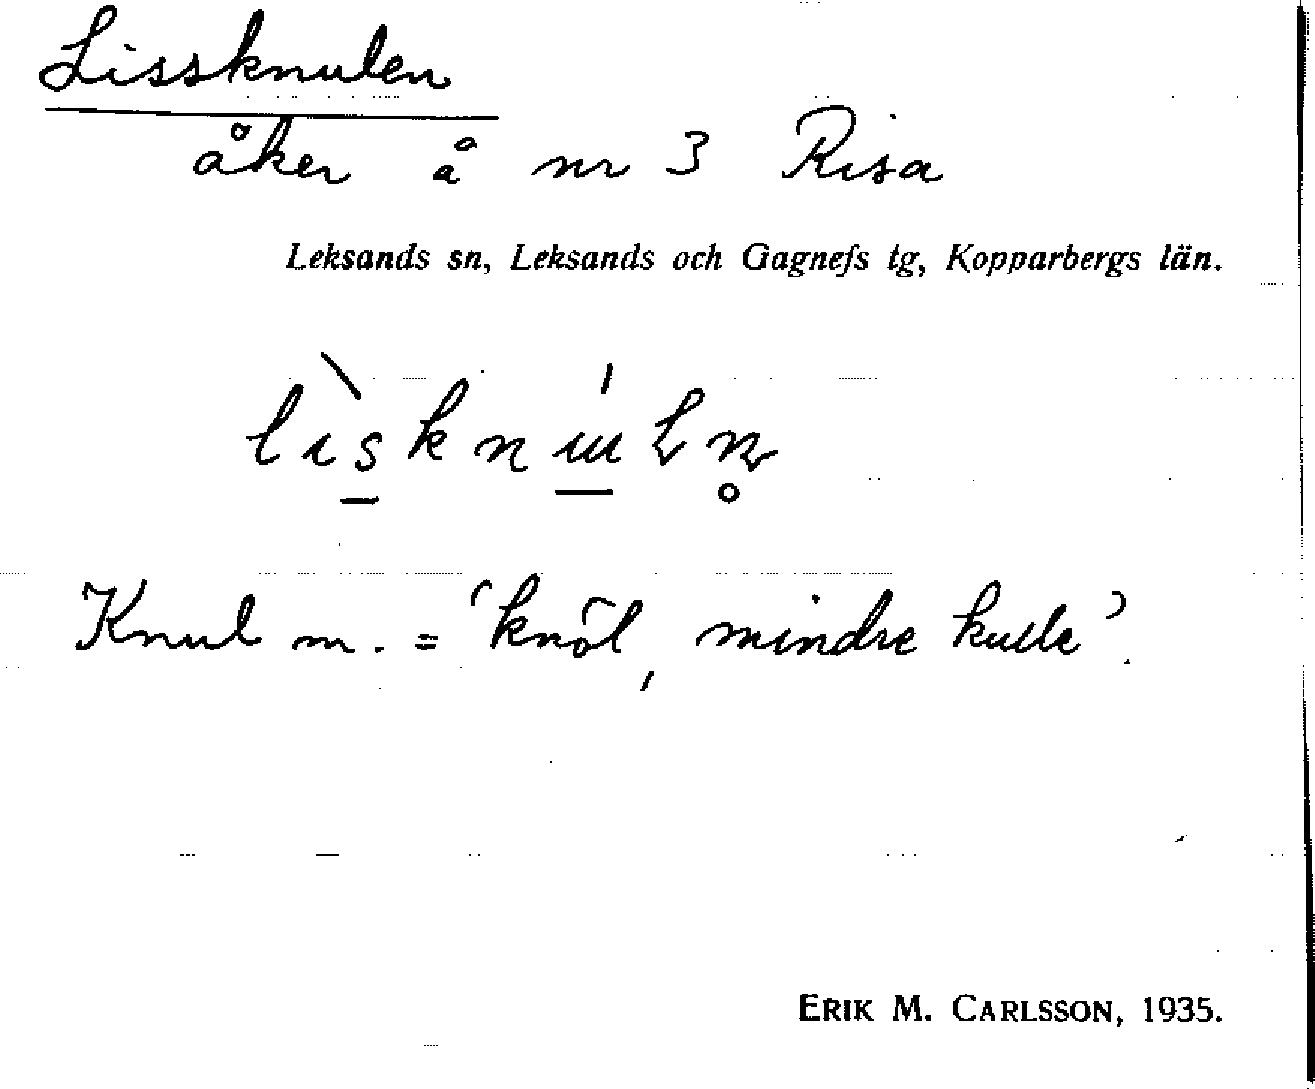 Lissknulen
åker å nr 3 Risa
Leksands sn, Leksands och Gagnefs tg, Kopparbergs län.
Knul m. = 'knöl, mindre kulle'.
ERIK M. CARLSSON, 1935.